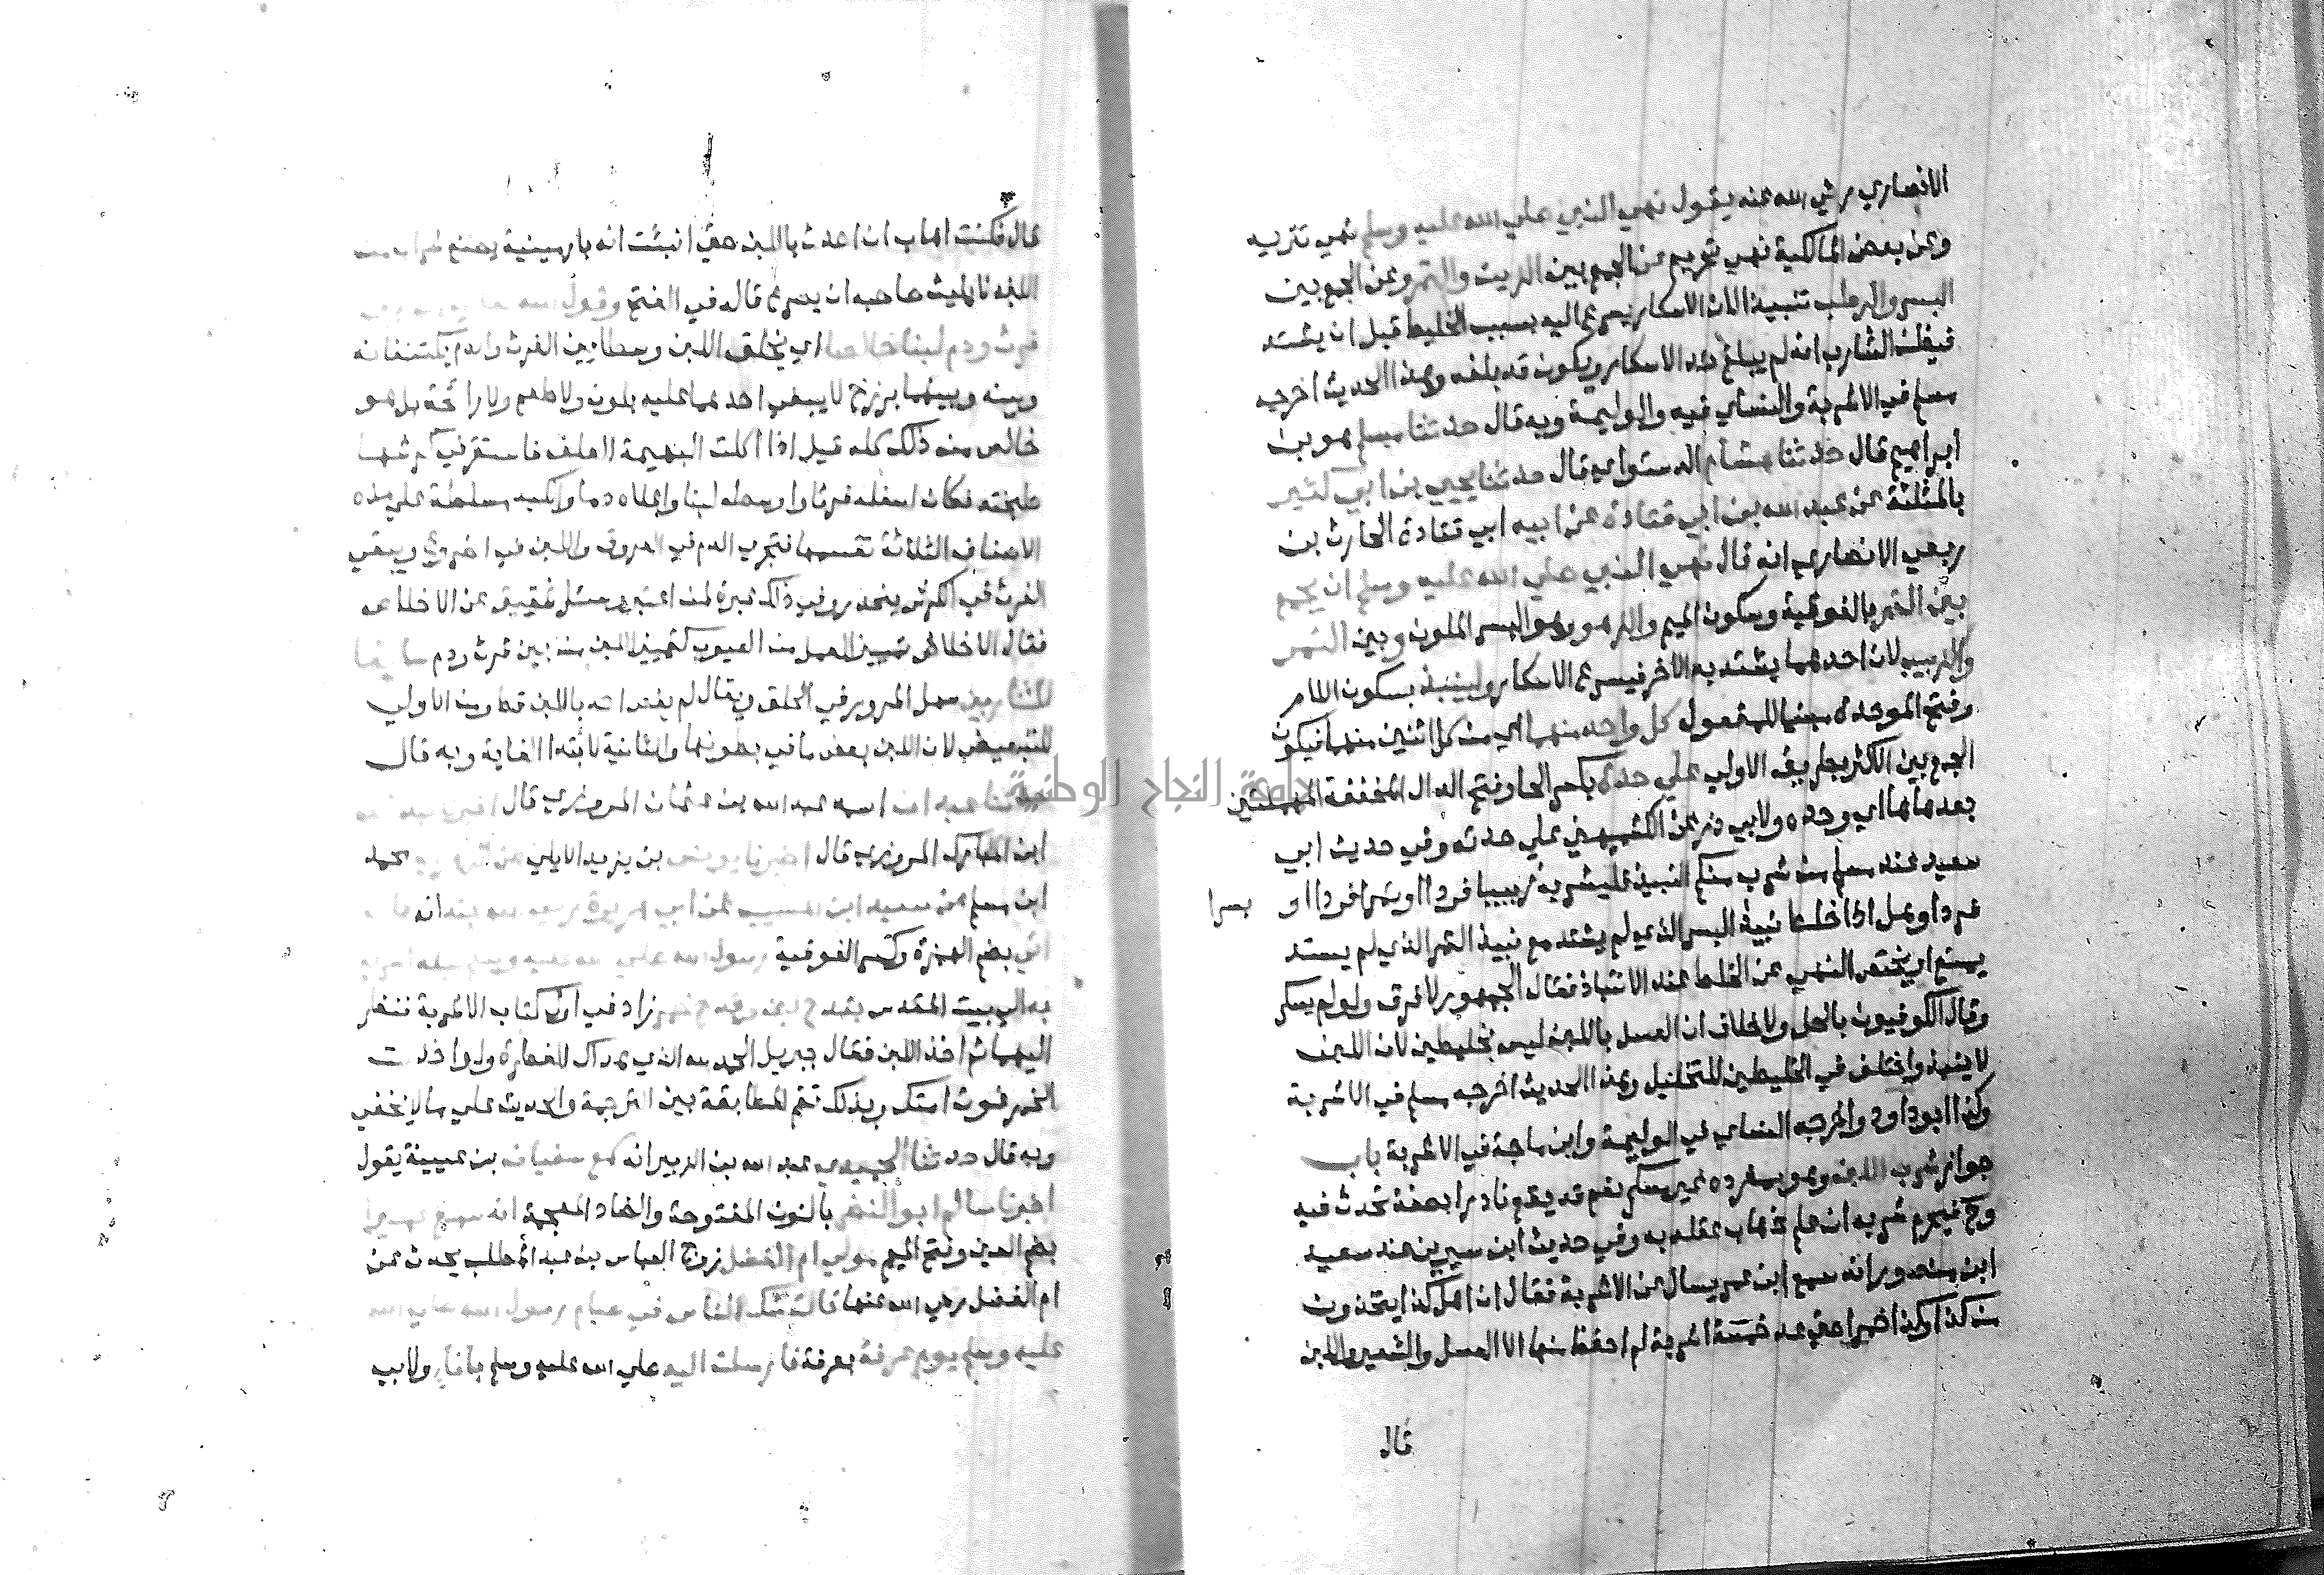 الانصاري رضي الله عنه يقول نهي النبي صلي الله عليه وسلم نهي تنزيه
وعن بعض المالكية نهي تحريم عن الجمع بين الزبيب والتمر وعن الجمع بين
البسر والرطب تنبيذا لان الاسكار يسرع اليه بسبب الخليط قبل ان يشتد
فيظن الشارب انه لم يبلغ حد الاسكار ويكون قد بلغه وهذا الحديث اخرجه
مسلم في الاشربة والنساي فيه والوليمة وبه قال حدثنا مسلم هو بن
ابراهيم قال حدثنا هشام الدستواي قال حدثنا يحيي بن ابي كثير
بالمثلثة عن عبد الله بن ابي قتادة عن ابيه ابي قتادة الحارث بن
ربعي الانصاري انه قال نهي النبي صلي الله عليه وسلم ان يجمع
بين التمر بالفوقية وسكون الميم والزهو وهو البسر الملون وبين التمر
والزبيب لان احدهما يشتد به الاخر فيسرع الاسكار ولينبذ بسكون اللام
وفتح الموحدة مبنيا للمفعول كل واحد منهما اي من كل اثنين منهما فيكون
الجمع بين الاكثر بطريق الاولي علي حدة بكسر الحا وفتح الدال المخففة المهملتين
بعدها ها اي وحده ولابي ذر عن الكشميهني علي حدته وفي حديث ابي
سعيد عند مسلم من شرب منكم النبيذ فليشربه زبيبا فردا او تمرا فردا او
بسرا
فردا وهل اذا خلط نبيذ البسر الذي لم يشتد مع نبيذ التمر الذي لم يشتد
يمتنع او يختص النهي عن الخلط عند الانتباذ فقال الجمهور لا فرق ولو لم يسكر
وقال الكوفيون بالحل ولا خلاف ان العسل باللبن ليس بخليطين لان اللبن
لا ينبذ واختلف في الخليطين للتخليل وهذا الحديث اخرجه مسلم في الاشربة
وكذا ابو داود واخرجه النساي في الوليمة وابن ماجة في الاشربة باب
جواز شرب اللبن وهو بمفرده غير مسكر نعم قد يقع نادرا بصفة تحدث فيه
وح فيحرم شربه ان علم ذهاب عقله به وفي حديث ابن سيرين عند سعيد
ابن منصور انه سمع ابن عمر يسال عن الاشربة فقال ان اهل كذا يتخذون
من كذا وكذا خمرا حتي عد خمسة اشربة لم احفظ منها الا العسل والشعير واللبن
قال
قال فكنت اهاب ان احدث باللبن حتي انبئت انه بارمينية يصنع شراب من
اللبن لا يلبث صاحبه ان يصرع قاله في الفتح وقول الله
فرث ودم لبنا خالصا اي يخلق اللبن وسطا بين الفرث والدم يكتنفانه
وبينه وبينهما برزخ لا يبغي احدهما عليه بلون ولا طعم ولا رائحة بل هو
خالص من ذلك كله قيل اذا اكلت البهيمة العلف فاستقر في كرشها
طبخته فكان اسفله فرثا واوسطه لبنا واعلاه دما والكبد مسلطة علي هذه
الاصناف الثلاثة تقسمها فتجري الدم في العروق واللبن في الضروع ويبقي
الفرث في الكرش ينحدر وفي ذلك عبرة لمن اعتبر وسئل شقيق عن الاخلاص
فقال الاخلاص تمييز العمل من العيوب كتمييز اللبن من بين فرث ودم سايغا
للشاربين سهل المرور في الحلق ويقال لم يغص احد باللبن قط ومن الاولي
للتبعيض لان اللبن بعض ما في بطونها والثانية لابتدا الغاية وبه قال
حدثنا عبدان اسمه عبد الله بن عثمان المروزي قال اخبرنا عبد الله
ابن المبارك المروزي قال اخبرنا يونس بن يزيد الايلي عن محمد
ابن مسلم عن سعيد ابن المسيب عن ابي هريرة رضي الله عنه انه قال
اتي بضم الهمزة وكسر الفوقية رسول الله صلي الله عليه وسلم ليلة اسري
به الي بيت المقدس بقدح لبن وقدح خمر زاد في اول كتاب الاشربة فنظر
اليهما ثم اخذ اللبن فقال جبريل الحمد لله الذي هداك للفطرة ولو اخذت
الخمر غوت امتك وبذلك تتم المطابقة بين الترجمة والحديث علي ما لا يخفي
وبه قال حدثنا الحميدي عبد الله بن الزبير انه سمع سفيان بن عيينة يقول
اخبرنا سالم ابو النضر بالنون المفتوحة والضاد المعجمة انه سمع عميرا
بضم العين وفتح الميم مولي ام الفضل زوج العباس بن عبد المطلب يحدث عن
ام الفضل رضي الله عنها قالت شك الناس في صيام رسول الله صلي الله
عليه وسلم يوم عرفة بعرفة فارسلت اليه صلي الله عليه وسلم باناء ولابي
جامعة النجاح الوطنية